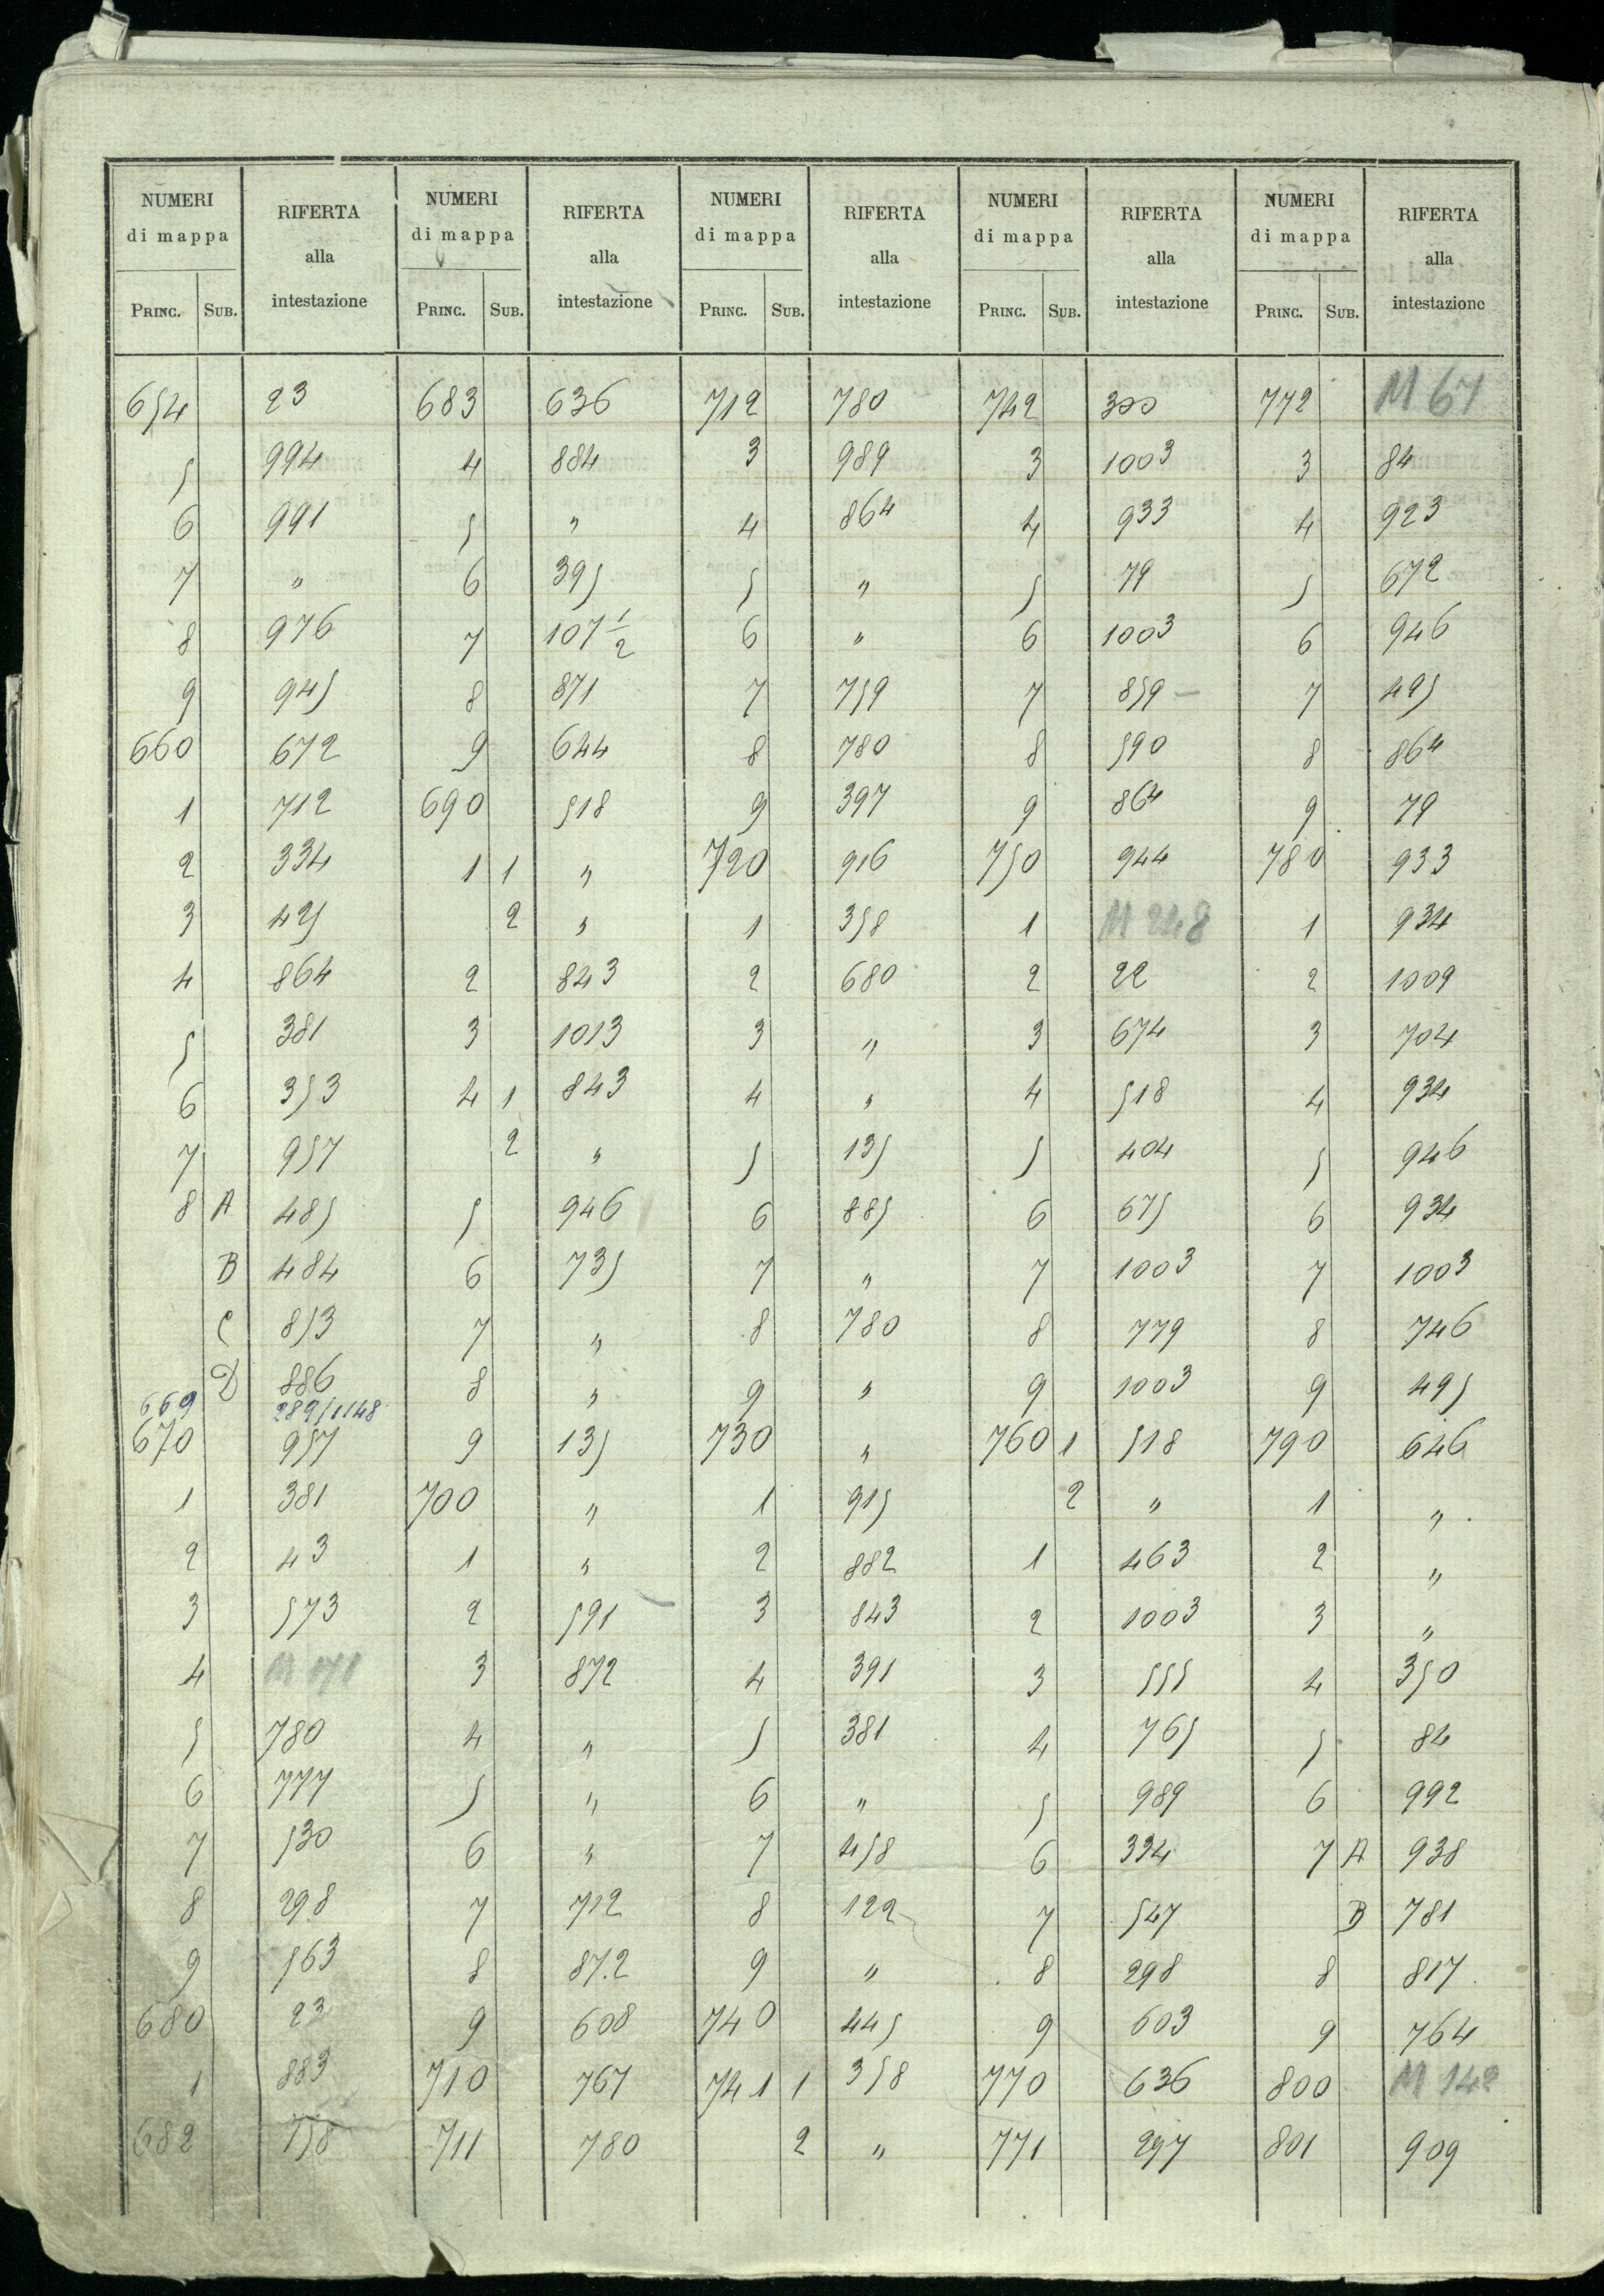 NUMERI di mappa | RIFERTA alla intestazione | NUMERI di mappa | RIFERTA alla intestazione | NUMERI di mappa | RIFERTA alla intestazione | NUMERI di mappa | RIFERTA alla intestazione | NUMERI di mappa | RIFERTA alla intestazione
PRINC. | SUB. | PRINC. | SUB. | PRINC. | SUB. | PRINC. | SUB. | PRINC. | SUB.
654 | 23 | 683 | 636 | 712 | 780 | 742 | 300 | 772 | M 67
5 | 994 | 4 | 884 | 3 | 989 | 3 | 1003 | 3 | 84
6 | 991 | 5 | " | 4 | 864 | 4 | 933 | 4 | 923
7 | " | 6 | 395 | 5 | " | 5 | 79 | 5 | 672
8 | 976 | 7 | 107 1/2 | 6 | " | 6 | 1003 | 6 | 946
9 | 945 | 8 | 871 | 7 | 759 | 7 | 859 – | 7 | 495
660 | 672 | 9 | 644 | 8 | 780 | 8 | 590 | 8 | 864
1 | 712 | 690 | 518 | 9 | 397 | 9 | 864 | 9 | 79
2 | 334 | 1 1 | " | 720 | 916 | 750 | 944 | 780 | 933
3 | 425 | 2 | " | 1 | 358 | 1 | M 248 | 1 | 934
4 | 864 | 2 | 843 | 2 | 680 | 2 | 22 | 2 | 1009
5 | 381 | 3 | 1013 | 3 | " | 3 | 674 | 3 | 704
6 | 353 | 4 1 | 843 | 4 | " | 4 | 518 | 4 | 934
7 | 957 | 2 | " | 5 | 135 | 5 | 404 | 5 | 946
8 A | 485 | 5 | 946 | 6 | 885 | 6 | 675 | 6 | 934
B | 484 | 6 | 735 | 7 | " | 7 | 1003 | 7 | 1003
C | 853 | 7 | " | 8 | 780 | 8 | 779 | 8 | 746
D | 886 | 8 | " | 9 | " | 9 | 1003 | 9 | 495
669 | 289/1148
670 | 957 | 9 | 135 | 730 | " | 760 1 | 518 | 790 | 646
1 | 381 | 700 | " | 1 | 915 | 2 | " | 1 | "
2 | 43 | 1 | " | 2 | 882 | 1 | 463 | 2 | "
3 | 573 | 2 | 591 | 3 | 843 | 2 | 1003 | 3 | "
4 | M | 3 | 872 | 4 | 391 | 3 | 555 | 4 | 350
5 | 780 | 4 | " | 5 | 381 | 4 | 765 | 5 | 84
6 | 777 | 5 | " | 6 | " | 5 | 989 | 6 | 992
7 | 530 | 6 | " | 7 | 458 | 6 | 334 | 7 A | 938
8 | 298 | 7 | 712 | 8 | 122 | 7 | 547 | B | 781
9 | 563 | 8 | 872 | 9 | " | 8 | 298 | 8 | 817
680 | 23 | 9 | 608 | 740 | 445 | 9 | 603 | 9 | 764
1 | 883 | 710 | 767 | 741 1 | 358 | 770 | 636 | 800 | M 142
682 | 758 | 711 | 780 | 2 | " | 771 | 297 | 801 | 909